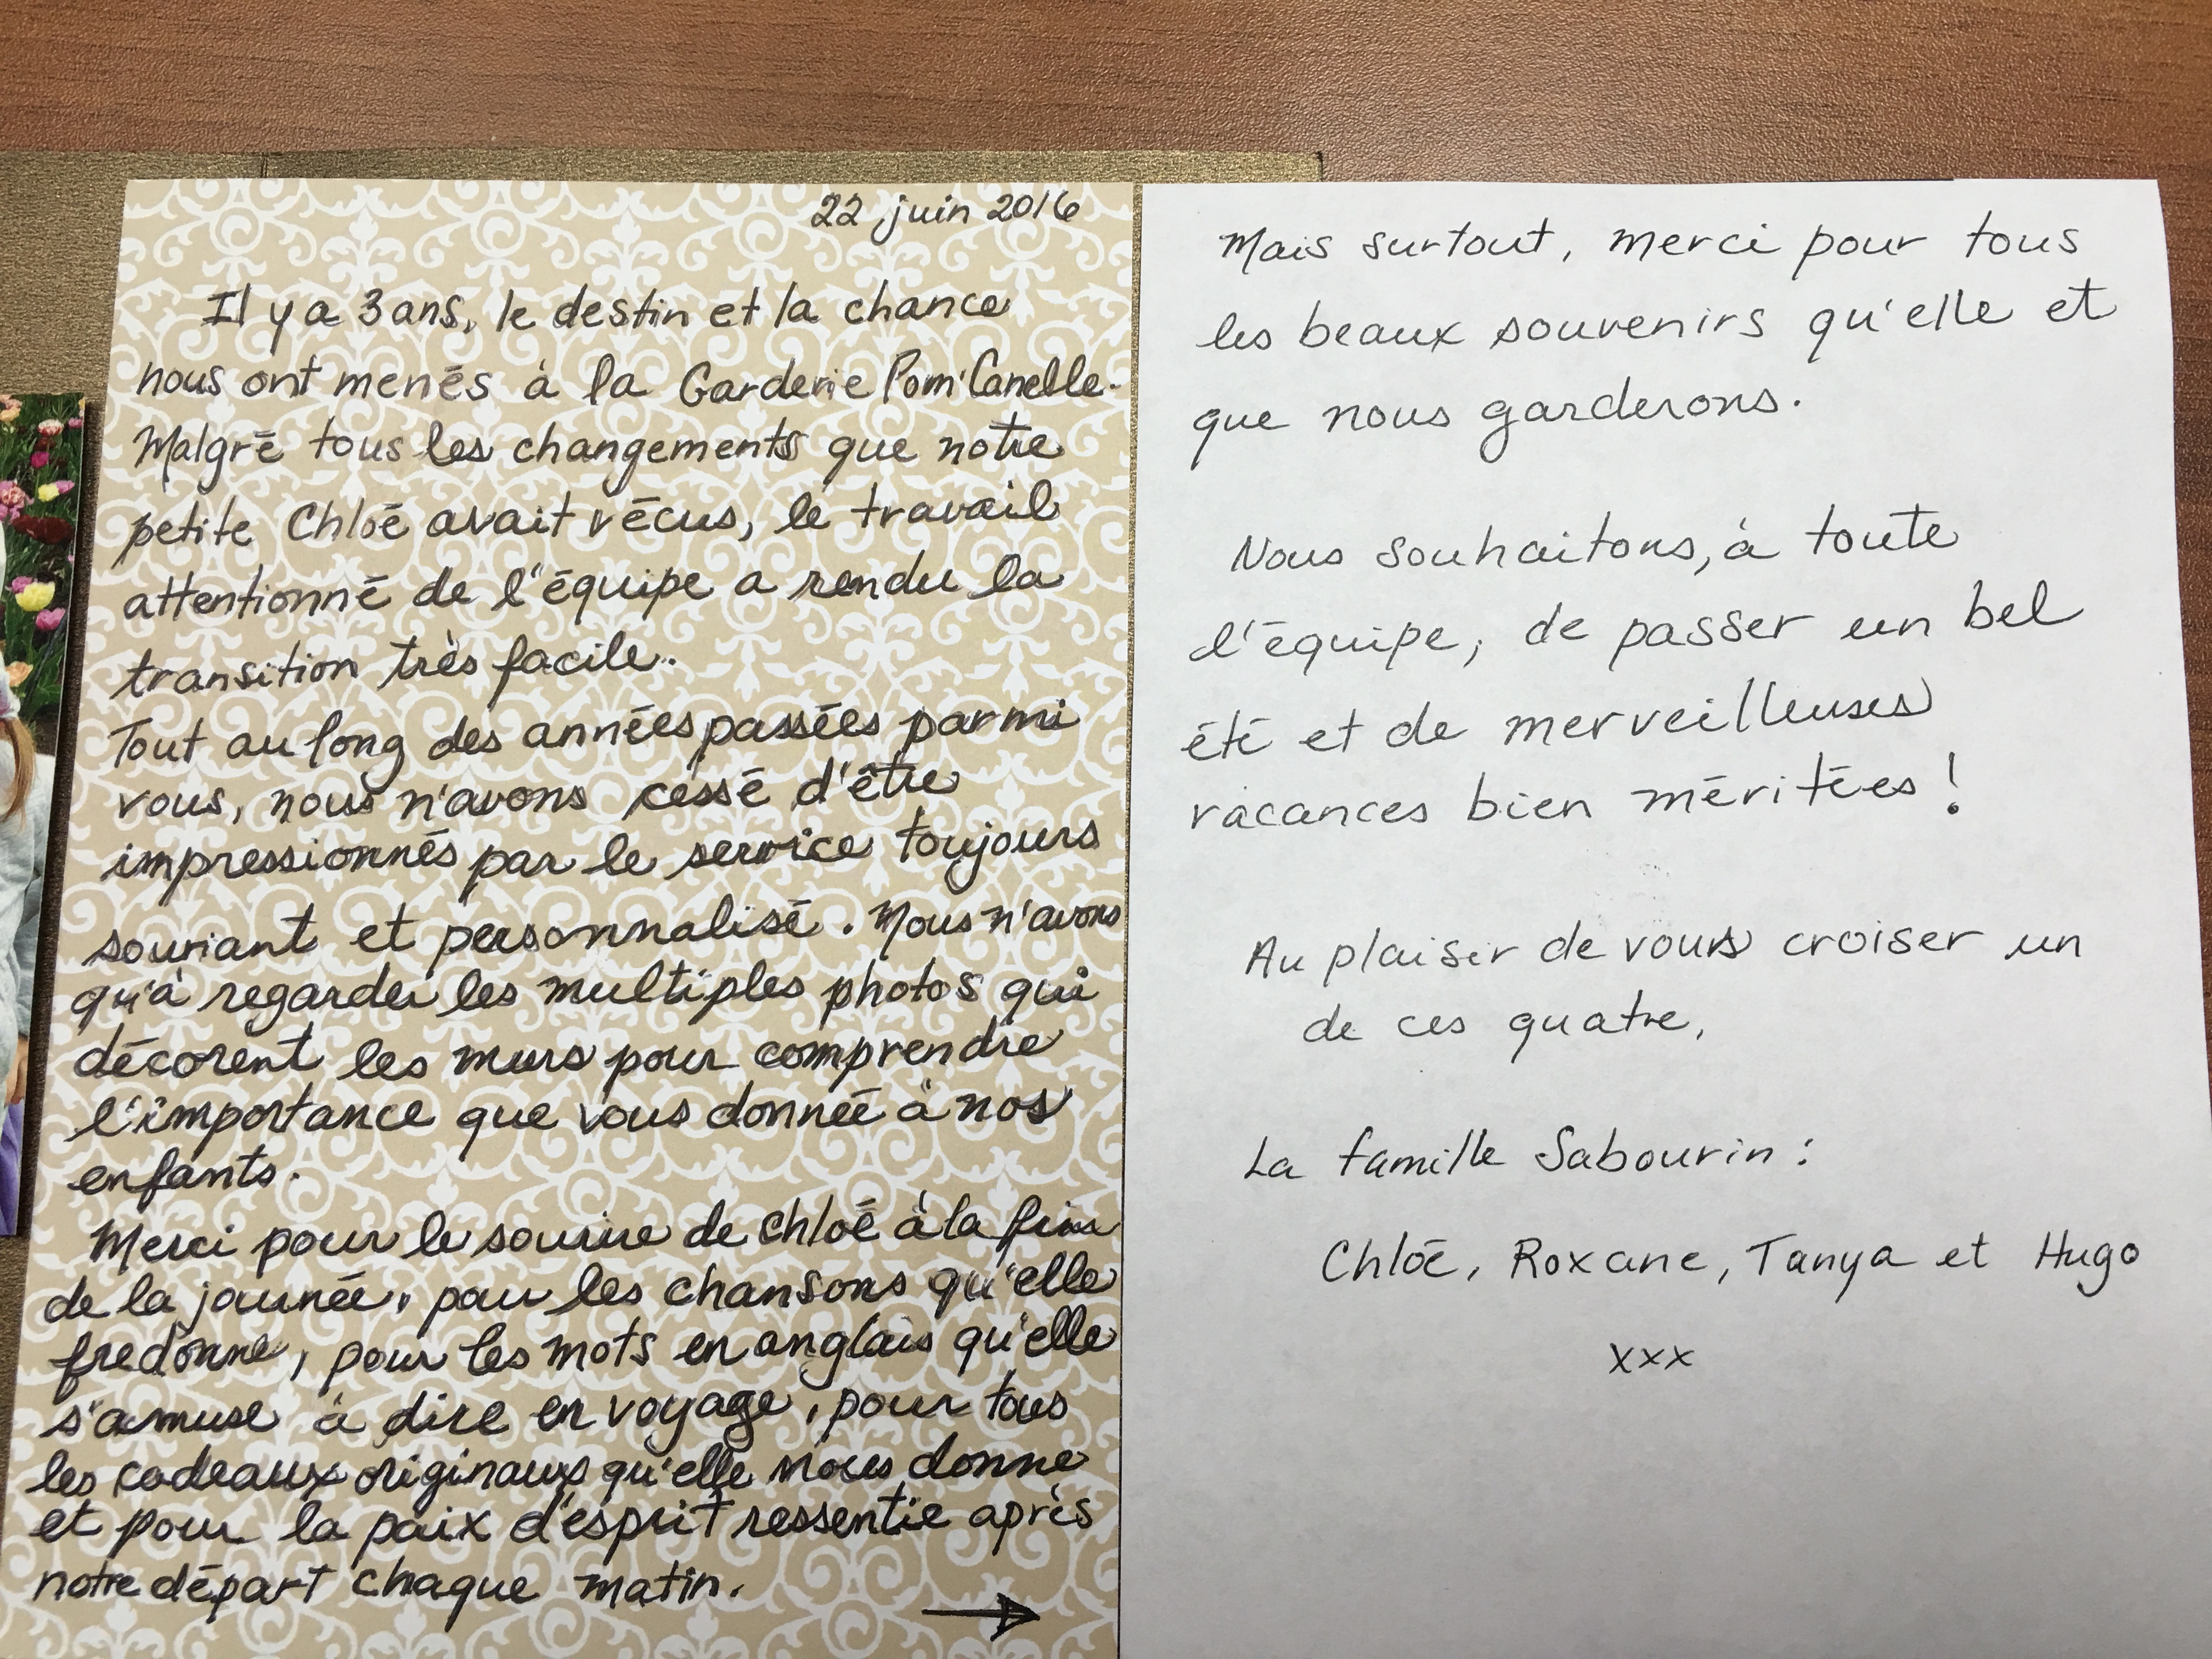 22 juin 2016
Il y a 3 ans, le destin et la chance
nous ont menés à la Garderie Pom'Canelle.
Malgré tous les changements que notre
petite Chloé avait vécus, le travail
attentionné de l'équipe a rendu la
transition très facile.
Tout au long des années passées parmi
vous, nous n'avons cessé d'être
impressionnés par le service toujours
souriant et personnalisé. Nous n'avons
qu'à regarder les multiples photos qui
décorent les murs pour comprendre
l'importance que vous donnée à nos
enfants.
Merci pour le sourire de Chloé à la fin
de la journée, pour les chansons qu'elle
fredonne, pour les mots en anglais qu'elle
s'amuse à dire en voyage, pour tous
les cadeaux originaux qu'elle nous donne
et pour la paix d'esprit ressentie après
notre départ chaque matin.
→
Mais surtout, merci pour tous
les beaux souvenirs qu'elle et
que nous garderons.
Nous souhaitons, à toute
l'équipe, de passer un bel
été et de merveilleuses
vacances bien méritées !
Au plaisir de vous croiser un
de ces quatre,
La famille Sabourin :
Chloé, Roxane, Tanya et Hugo
xxx